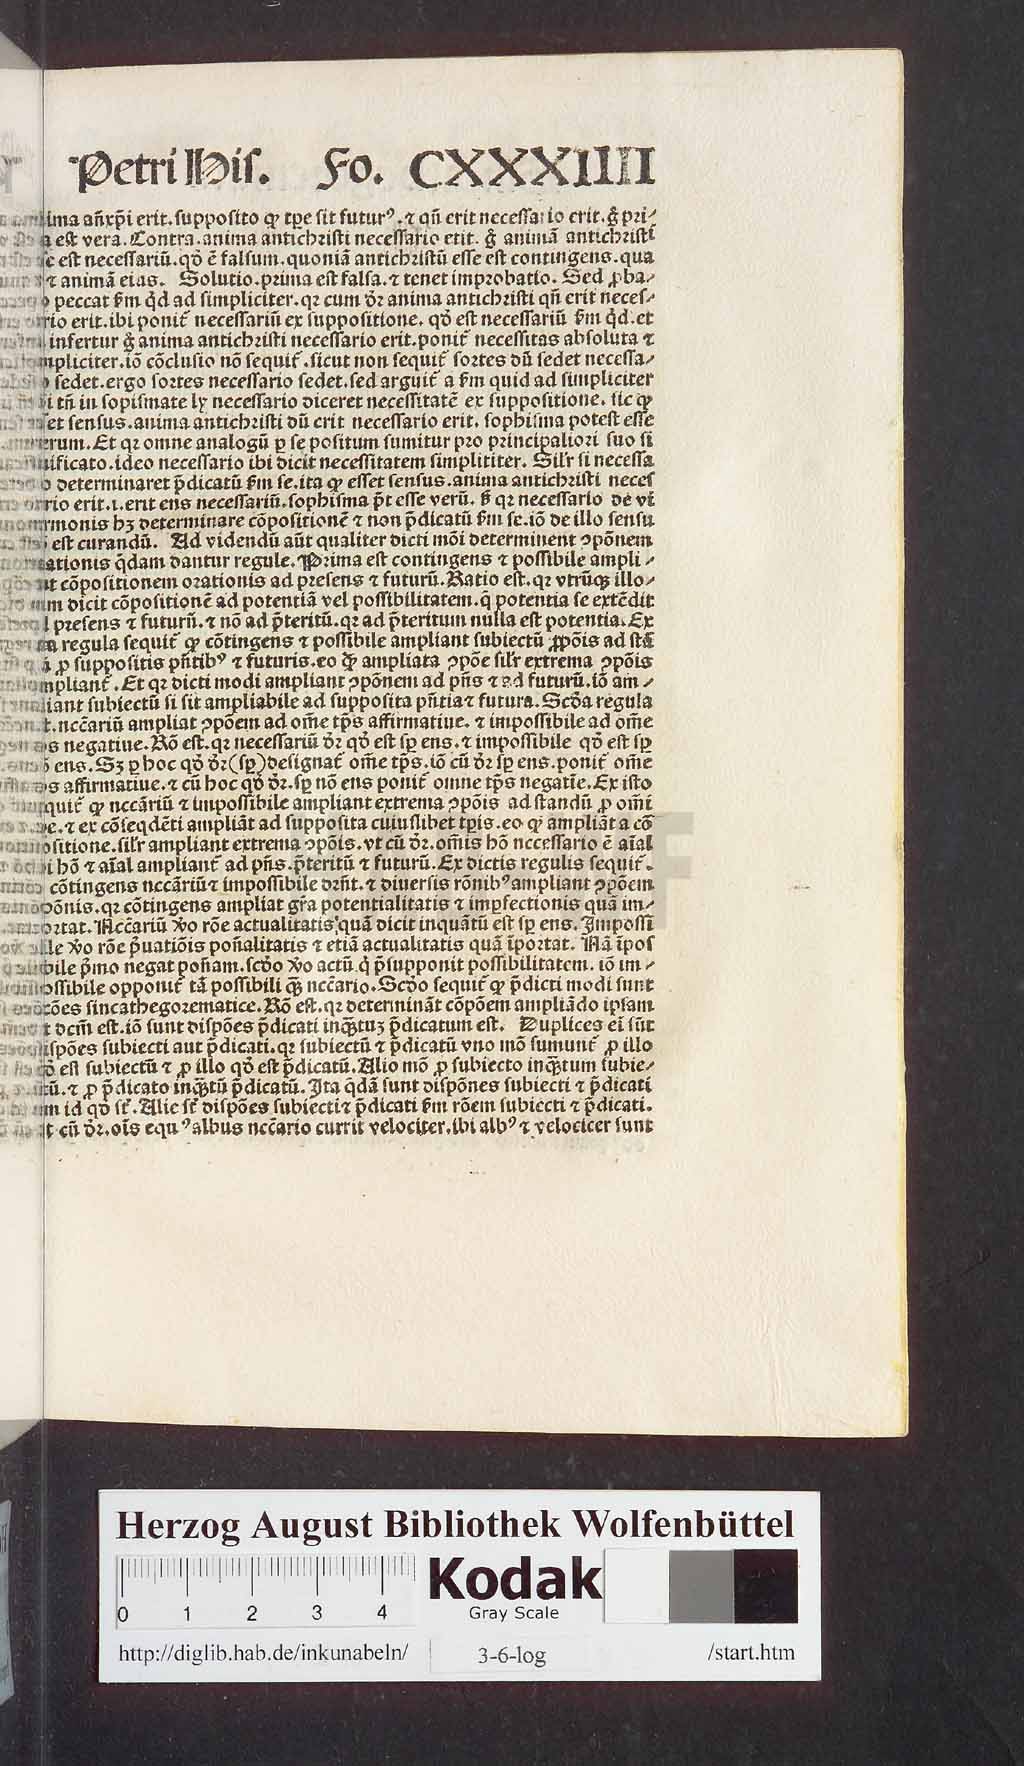 Petri His. Fo. CXXXIIII
ima añxp̃i erit. supposito ꝙ tp̃e sit futurꝰ. ⁊ qñ erit necessario erit. g̃ pri⸗
a est vera. Contra. anima antichristi necessario erit. g̃ animã antichristi
e est necessariũ. qð ẽ falsum. quoniã antichristũ esse est contingens. qua
⁊ animã eias. Solutio. prima est falsa. ⁊ tenet improbatio. Sed ꝓba⸗
o peccat ẜm q̃d ad simpliciter. qꝛ cum dr̃ anima antichristi qñ erit neces⸗
rio erit. ibi ponit̃ necessariũ ex suppositione. qð est necessariũ ẜm q̃d. et
infertur g̃ anima antichristi necessario erit. ponit̃ necessitas absoluta ⁊
mpliciter. iõ cõclusio nõ sequit̃. sicut non sequit̃ sortes dũ sedet necessa⸗
o sedet. ergo sortes necessario sedet. sed arguit̃ a ẜm quid ad simpliciter
i tñ in sopismate ly necessario diceret necessitatẽ ex suppositione. sic ꝙ
et sensus. anima antichristi dũ erit necessario erit. sophisma potest esse
erum. Et qꝛ omne analogũ ꝑ se positum sumitur pro principaliori suo si
ificato. ideo necessario ibi dicit necessitatem simplititer. Sil'r si necessa
o determinaret p̃dicatũ ẜm se. ita ꝙ esset sensus. anima antichristi neces
rio erit. i. erit ens necessariũ. sophisma p̃t esse verũ. ẜ qꝛ necessario de vi
rmonis hꝫ determinare cõpositionẽ ⁊ non p̃dicatũ ẜm se. iõ de illo sensu
est curandũ. Ad videndũ aũt qualiter dicti mõi determinent ꝯpõnem
ationis q̃dam dantur regule. Prima est contingens ⁊ possibile ampli⸗
t cõpositionem orationis ad presens ⁊ futurũ. Ratio est. qꝛ vtrũqꝫ illo⸗
m dicit cõpositionẽ ad potentiã vel possibilitatem. q̃ potentia se extẽdit
l presens ⁊ futurũ. ⁊ nõ ad p̃teritũ. qꝛ ad p̃teritum nulla est potentia. Ex
a regula sequit̃ ꝙ cõtingens ⁊ possibile ampliant subiectũ ꝓpõis ad stã
ꝓ suppositis pñtibꝰ ⁊ futuris. eo ꝙ ampliata ꝯpõe sil'r extrema ꝯpõis
mpliant̃. Et qꝛ dicti modi ampliant ꝯpõnem ad pñs ⁊ ad futurũ. iõ am⸗
iant subiectũ si sit ampliabile ad supposita pñtia ⁊ futura. Scða regula
t. nccariũ ampliat ꝯpõem ad om̃e tp̃s affirmatiue. ⁊ impossibile ad om̃e
s negatiue. Rõ est. qꝛ necessariũ dr̃ qð est sp̃ ens. ⁊ impossibile qð est sp̃
ens. Sꝫ ꝑ hoc qð dr̃ (sp̃) designat̃ om̃e tp̃s. iõ cũ dr̃ sp̃ ens. ponit̃ om̃e
s affirmatiue. ⁊ cũ hoc qð dr̃. sp̃ nõ ens ponit̃ omne tp̃s negatĩe. Ex isto
quit̃ ꝙ nccãriũ ⁊ impossibile ampliant extrema ꝯpõis ad standũ ꝓ om̃i
e. ⁊ ex cõseq̃dẽti ampliãt ad supposita cuiuslibet tp̃is. eo ꝙ ampliãt a cõ
ositione. sil'r ampliant extrema ꝯpõis. vt cũ dr̃. om̃is hõ necessario ẽ aĩal
i hõ ⁊ aĩal ampliant̃ ad pñs. p̃teritũ ⁊ futurũ. Ex dictis regulis sequit̃.
cõtingens nccãriũ ⁊ impossibile drñt. ⁊ diuersis rõnibꝰ ampliant ꝯpõem
põnis. qꝛ cõtingens ampliat gr̃a potentialitatis ⁊ imꝑfectionis quã im⸗
ortat. Nccariũ ꝟo rõe actualitatis quã dicit inquãtũ est sp̃ ens. Impossi
le ꝟo rõe p̃uatiõis poñalitatis ⁊ etiã actualitatis quã ĩportat. Nã ĩpos
bile p̃mo negat poñam. scðo ꝟo actũ. q̃ p̃supponit possibilitatem. iõ im⸗
ossibile opponit̃ tã possibili q̃ꝫ nccario. Scðo sequit̃ ꝙ p̃dicti modi sunt
ões sincathegorematice. Rõ est. qꝛ determinãt cõpõem ampliãdo ipsam
t dcm̃ est. iõ sunt dispões p̃dicati inq̃ꝫtuꝫ p̃dicatum est. Duplices ei sũt
ispões subiecti aut p̃dicati. qꝛ subiectũ ⁊ p̃dicatũ vno mõ sumunt̃ ꝓ illo
ð est subiectũ ⁊ ꝓ illo qð est p̃dicatũ. Alio mõ ꝓ subiecto inq̃ꝫtum subie⸗
tũ. ⁊ ꝓ p̃dicato inq̃ꝫtũ p̃dicatũ. Ita q̃dã sunt dispõnes subiecti ⁊ p̃dicati
m id qð st̃. Alie st̃ dispões subiecti ⁊ p̃dicati ẜm rõem subiecti ⁊ p̃dicati.
t cũ dr̃. oĩs equꝰ albus nccario currit velociter. ibi albꝰ ⁊ velociter sunt
Herzog August Bibliothek Wolfenbüttel
0 1 2 3 4
Kodak
Gray Scale
http://diglib.hab.de/inkunabeln/ 3-6-log /start.htm